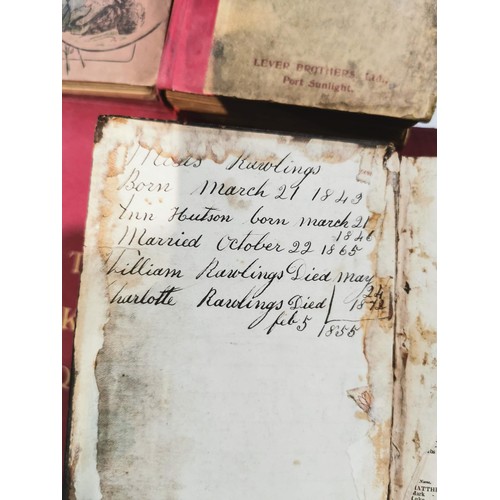 LEVER BROTHERS, Ltd.,
Port Sunlight.
Rawlings
Born March 21 1843
Ann Hutson born march 21
1846
Married October 22 1865
William Rawlings Died May
24
Charlotte Rawlings Died
feb 5 1855